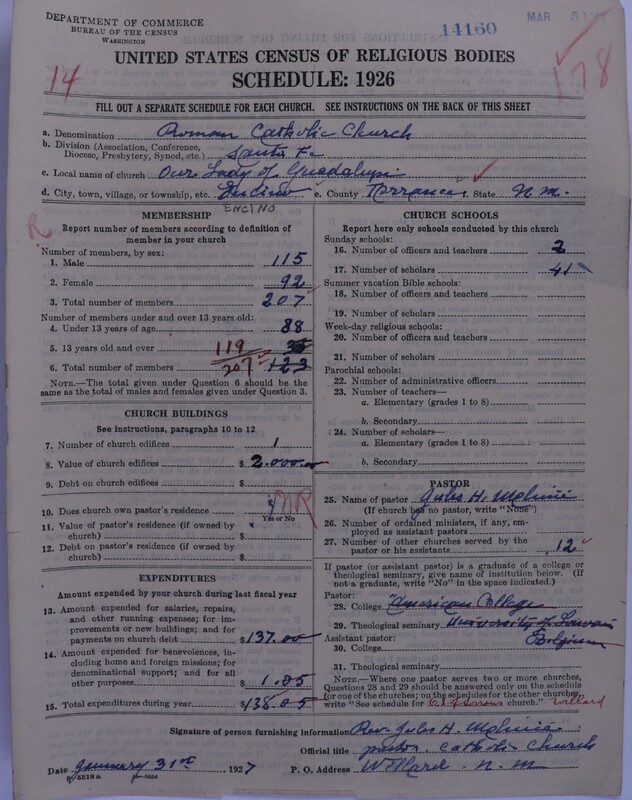 DEPARTMENT OF COMMERCE
BUREAU OF THE CENSUS
WASHINGTON
14160
MAR 5 1927
UNITED STATES CENSUS OF RELIGIOUS BODIES
SCHEDULE: 1926
14
178
FILL OUT A SEPARATE SCHEDULE FOR EACH CHURCH. SEE INSTRUCTIONS ON THE BACK OF THIS SHEET
a. Denomination Roman Catholic Church
b. Division (Association, Conference, Diocese, Presbytery, Synod, etc.) Santa Fe
c. Local name of church Our Lady of Guadalupi
d. City, town, village, or township, etc. e. County Torrance f. State N. M.
ENCINO
R
MEMBERSHIP
Report number of members according to definition of
member in your church
Number of members, by sex:
1. Male 115
2. Female 92
3. Total number of members 207
Number of members under and over 13 years old:
4. Under 13 years of age 88
5. 13 years old and over 119
6. Total number of members 207 123
NOTE.—The total given under Question 6 should be
same as the total of males and females given under Question 3.
CHURCH BUILDINGS
See instructions, paragraphs 10 to 12
7. Number of church edifices 1
8. Value of church edifices $ 2.000.00
9. Debt on church edifices $
10. Does church own pastor's residence NR
Yes or No
11. Value of pastor's residence (if owned by
church) $
12. Debt on pastor's residence (if owned by
church) $
EXPENDITURES
Amount expended by your church during last fiscal year
13. Amount expended for salaries, repairs,
and other running expenses; for im-
provements or new buildings; and for
payments on church debt $ 137.00
14. Amount expended for benevolences,
including home and foreign missions; for
denominational support; and for all
other purposes $ 1.05
15. Total expenditures during year $ 138.05
CHURCH SCHOOLS
Report here only schools conducted by this church
Sunday schools:
16. Number of officers and teachers 2
17. Number of scholars 41
Summer vacation Bible schools:
18. Number of officers and teachers
19. Number of scholars
Week-day religious schools:
20. Number of officers and teachers
21. Number of scholars
Parochial schools:
22. Number of administrative officers
23. Number of teachers—
a. Elementary (grades 1 to 8)
b. Secondary
24. Number of scholars—
a. Elementary (grades 1 to 8)
b. Secondary
PASTOR
25. Name of pastor Jules H. Molinié
(If church has no pastor, write "None")
26. Number of ordained ministers, if any, em-
ployed as assistant pastors
27. Number of other churches served by the
pastor or his assistants 12
If pastor (or assistant pastor) is a graduate of a college or
theological seminary, give name of institution below. (If
not a graduate, write "No" in the space indicated.)
Pastor:
28. College American College
29. Theological seminary University of Louvain
Belgium
Assistant pastor:
30. College
31. Theological seminary
NOTE.—Where one pastor serves two or more churches,
Questions 28 and 29 should be answered only on the schedule
for one of the churches; on the schedules for the other churches,
write "See schedule for church." Willard
Signature of person furnishing information Rev. Jules H. Molinié
Official title pastor. Catholic Church
Date January 31st 1927 P. O. Address Willard N. M